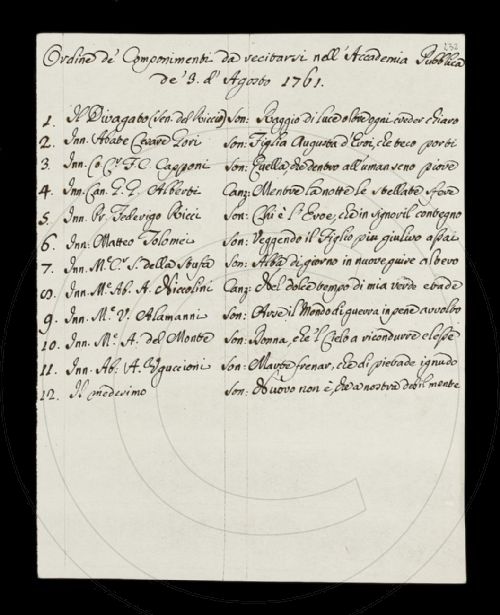 232
Ordine de' Componimenti da recitarsi nell'Accademia Pubblica
de' 3. d' Agosto 1761.
1. Il Divagato (Sen. del Riccio) Son: Raggio di luce oltre ogni creder chiaro
2. Inn. Abate Cesare Gori Son: Figlia Augusta d'Eroi, che teco porti
3. Inn. Co. Cr. F. O. Capponi Son: Quella, che dentro all'uman seno piove
4. Inn. Can. G. G. Alberti Canz: Mentre la notte le stellate sfere
5. Inn. Pr. Federigo Ricci Son: Chi è l'Eroe, che in signoril contegno
6. Inn. Matteo Tolomei Son: Veggendo il Figlio più giulivo assai
7. Inn. M. Cr. S. della Stufa Son: Alba di giorno in nuove guise albevo
8. Inn. Me. Ab. A. Niccolini Canz: Nel dolce tempo di mia verde etade
9. Inn. M. V. Alamanni Son: Arse il Mondo di guerra in pene avvolto
10. Inn. Me. A. del Monte Son: Donna, che 'l Cielo a ricondurre elesse
11. Inn. Ab. A. Uguccioni Son: Marte frenar, che di pietade ignudo
12. Il medesimo Son: Nuovo non è, che a nostra debil mente